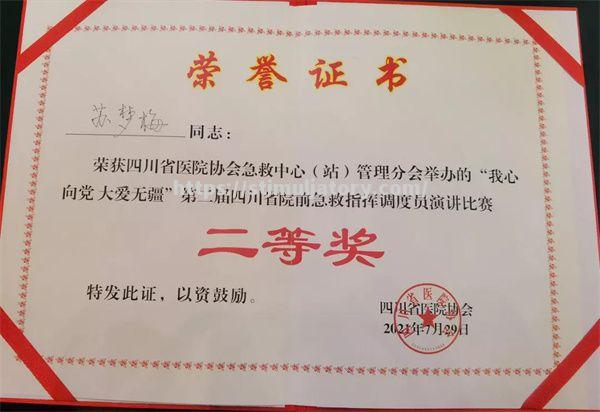 荣誉证书
苏梦梅 同志:
荣获四川省医院协会急救中心（站）管理分会举办的“我心
向党 大爱无疆”第二届四川省院前急救指挥调度员演讲比赛
https://stimuliatory.com/
二等奖
特发此证，以资鼓励。
四川省医院协会
2021年7月29日
四川省医院协会